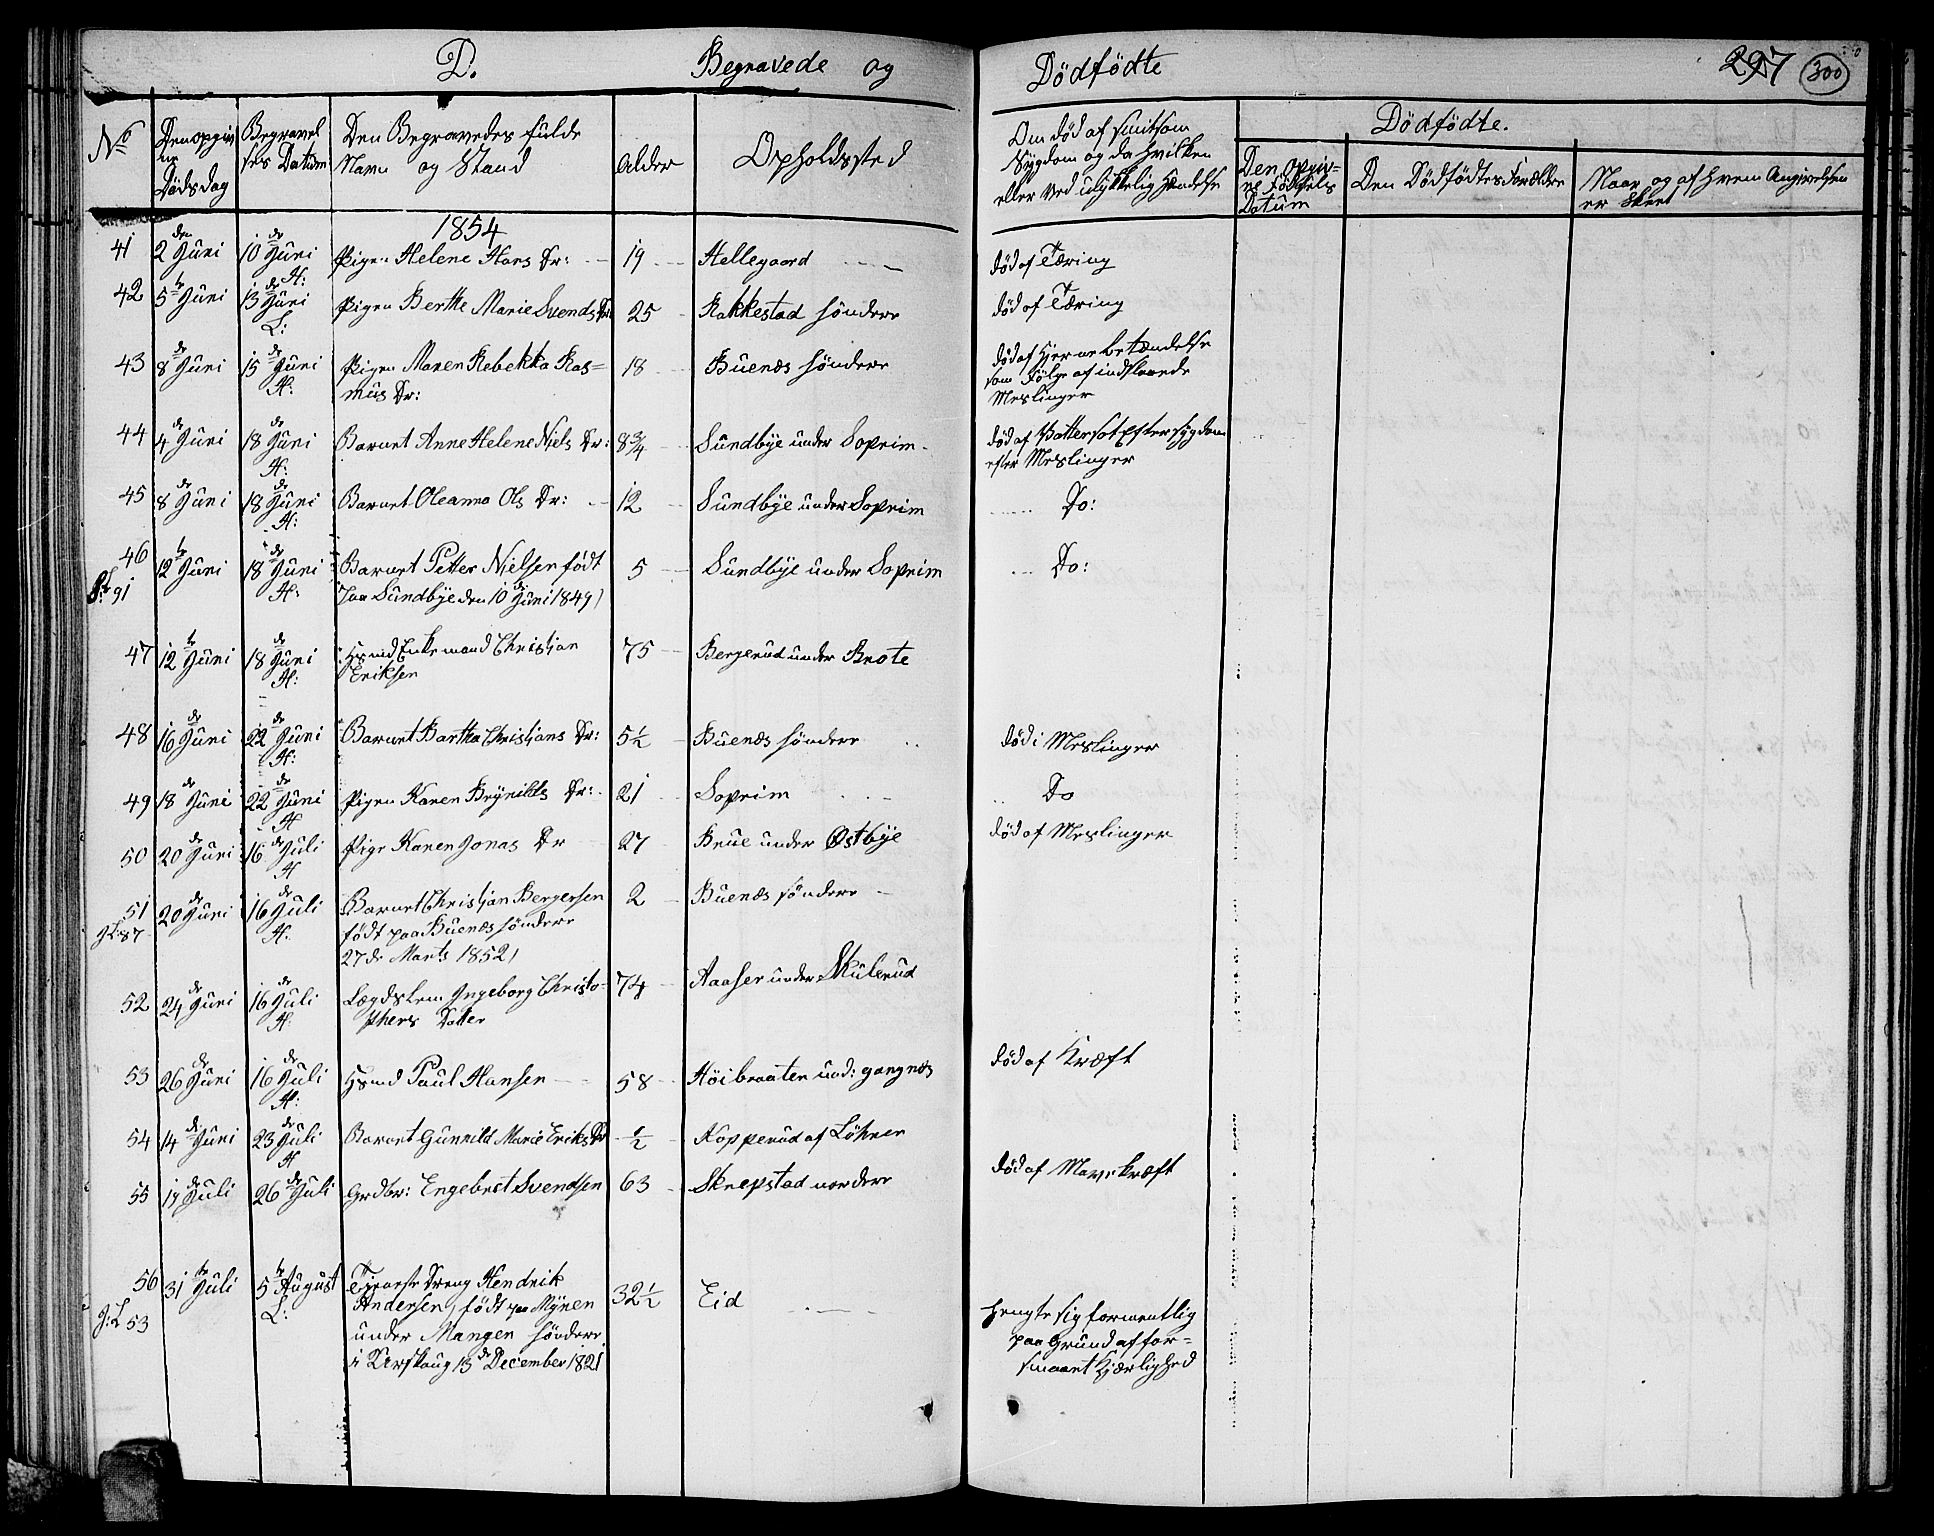 D. Begravede og Dödfödte 297 300
No
Den opgivne Dödsdag
Begravelses Datum
Den Begravedes fulde Navn og Stand
Alder
Opholdssted
Om död af smitsom Sygdom og da hvilken eller ved ulykkelig Hændelse
Dödfödte.
Den opgivne Födsels Datum
Den Dödfödtes Forældre
Naar og af hvem Angivelsen er skeet
1854
41 2den Juni 10de Juni H: Pigen Helene Hans Dr: 19 Hellegaard död af Tæring
42 5te Juni 13de Juni L: Pigen Berthe Marie Svends Dr: 25 Rakkestad söndere död af Tæring
43 8de Juni 15de Juni H: Pigen Maren Rebekka Ras=
mus Dr: 18 Buenæs söndere död af Hjernebetændelse
som Fölge af indslaaede
Meslinger
44 4de Juni 18de Juni H: Barnet Anne Helene Niels Dr: 8 3/4 Sundbye under Soprim död af Vattersot Eftersygdom
efter Meslinger
45 8de Juni 18de Juni H: Barnet Oleanna Ols Dr: 12 Sundbye under Soprim Do:
46 12te Juni 18de Juni H: Barnet Petter Nielsen födt
paa Sundbye den 10de Juni 1849) 5 Sundbye under Soprim Do:
91
47 12te Juni 18de Juni H: Hsmd Enkemand Christjan
Eriksen 75 Bergerud under Brote
48 16de Juni 22de Juni H: Barnet Bertha Christjans Dr: 5 1/2 Buenæs söndere död i Meslinger
49 18de Juni 22de Juni H Pigen Karen Brynilds Dr: 21 Soprim Do
50 20de Juni 16de Juli H Pige Karen Jonas Dr 27 Brue under Østbye död af Meslinger
51 20de Juni 16de Juli H. Barnet Christjan Bergersen
födt paa Buenæs söndere
27de Marts 1852) 2 Buenæs söndere
J:L 87
52 24de Juni 16de Juli H: Lægdslem Ingeborg Christo-
phers Datter 74 Aaaser under Skulerud
53 26de Juni 16de Juli H: Hsmd Paul Hansen 58 Höibraaten und: gangnæs död af Kræft
54 14de Juni 23de Juli H Barnet Gunnild Marie Eriks Dr 1/2 Kopperud af Löhren
55 19de Juli 26de Juli Grdbr: Engebret Svendsen 63 Skrepstad nordere död af Mavekræft
56 31te Juli 5te August L: Tjeneste Dreng Hendrik
Andersen, födt paa Mynen
under Mangen söndere
i Urskoug 13de December 1821 32 1/2 Eid Hengte sig formentlig
paa Grund af for=
smaaet Kjærlighed
J:L 53